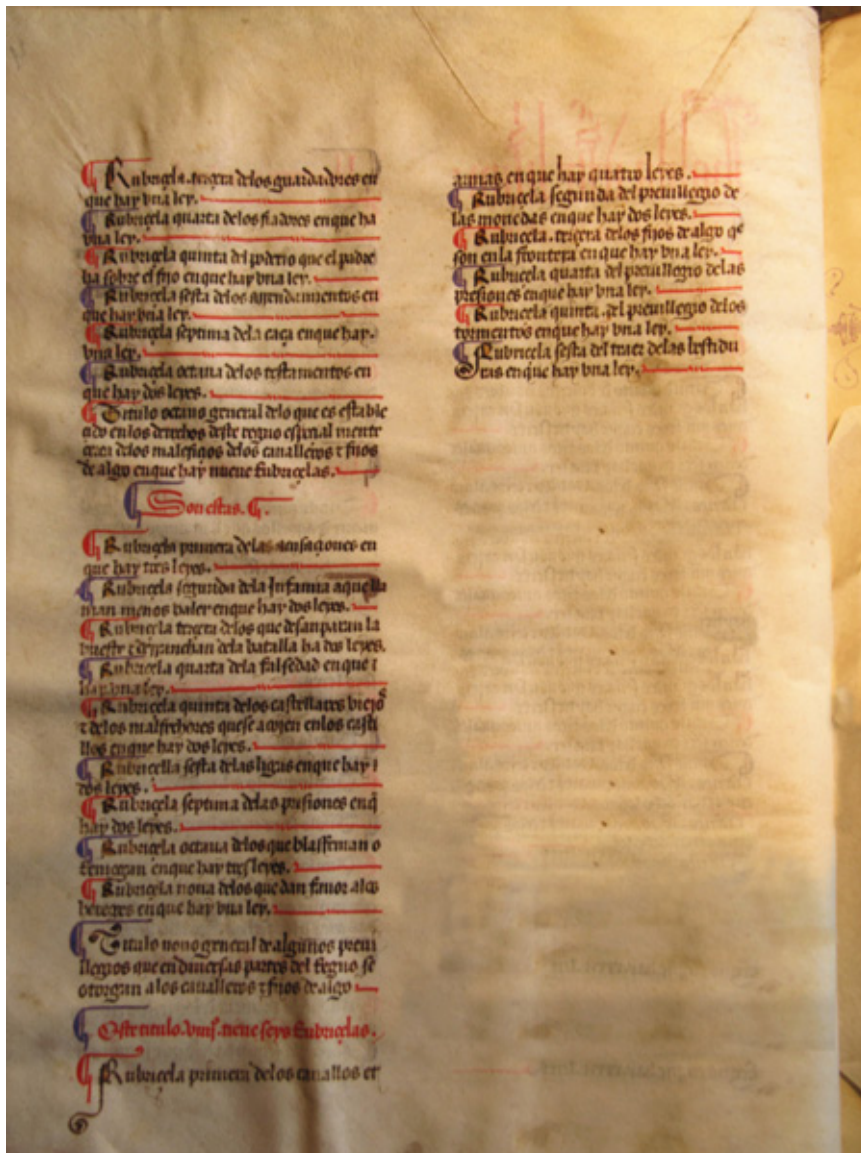 Rubriçela. terçera delos guardadores en
que hay vna ley.
Rubriçela quarta delos fiadores en que ha
vna ley.
Rubriçela quinta del poderio que el padre
ha sobre el fijo en que hay vna ley.
Rubriçela sesta delos arrendamientos en
que hay vna ley.
Rubriçela septima dela caça en que hay.
vna ley.
Rubriçela octaua delos testamentos en
que hay dos leyes.
Titulo octauo general delo que es estable
çido en los derechos deste regno espeçial mente
çerca delos malefiçios delos caualleros τ fijos
de algo en que hay nueue Rubriçelas.
Son estas.
Rubriçela primera de las acusaçiones en
que hay tres leyes.
Rubriçela segunda dela Infamia aque lla
man menos valer en que hay dos leyes.
Rubriçela terçera delos que desanparan la
hueste τ derranchan dela batalla ha dos leyes.
Rubriçela quarta dela falsedad en que
hay vna ley.
Rubriçela quinta delos castellares viejos
τ delos malfechores que se acojen en los casti
llos en que hay dos leyes.
Rubriçella sesta delas ligas en que hay
dos leyes.
Rubriçela septima delas prisiones en q̃
hay dos leyes.
Rubriçela octaua delos que blasfeman o
reniegan en que hay tres leyes.
Rubriçela nona delos que dan fauor alos
hereges en que hay vna ley.
Titulo nono general de algunos preui
llegios que en diuersas partes del Regno se
otorgan a los caualleros τ fijos de algo
Este titulo. tiene seys Rubriçelas.
Rubriçela primera delos cauallos et
armas en que hay quatro leyes.
Rubriçela segunda del preuillegio de
las monedas en que hay dos leyes.
Rubriçela. terçera delos fijos de algo qe
son en la frontera en que hay vna ley.
Rubriçela quarta del preuillegio delas
presiones en que hay vna ley.
Rubriçela quinta. del preuillegio delos
tormentos en que hay vna ley.
Rubriçela sesta del traer delas bestidu
ras en que hay vna ley.